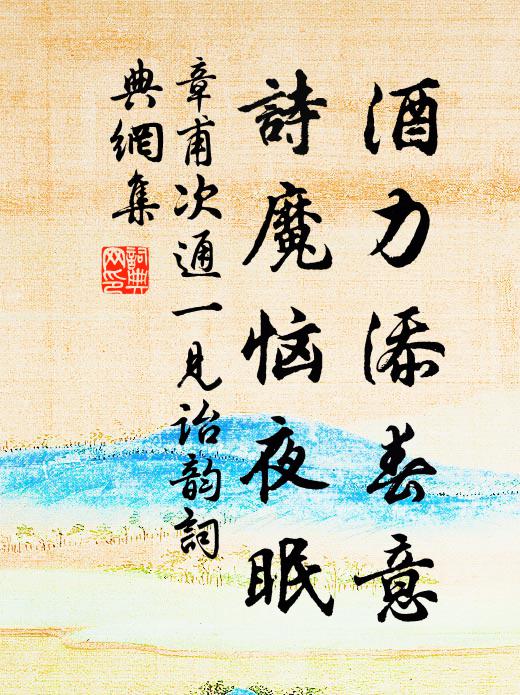 酒力添春意
詩魔恼夜眠
章甫次通一見詒韵詞
典網集
詞典
网印